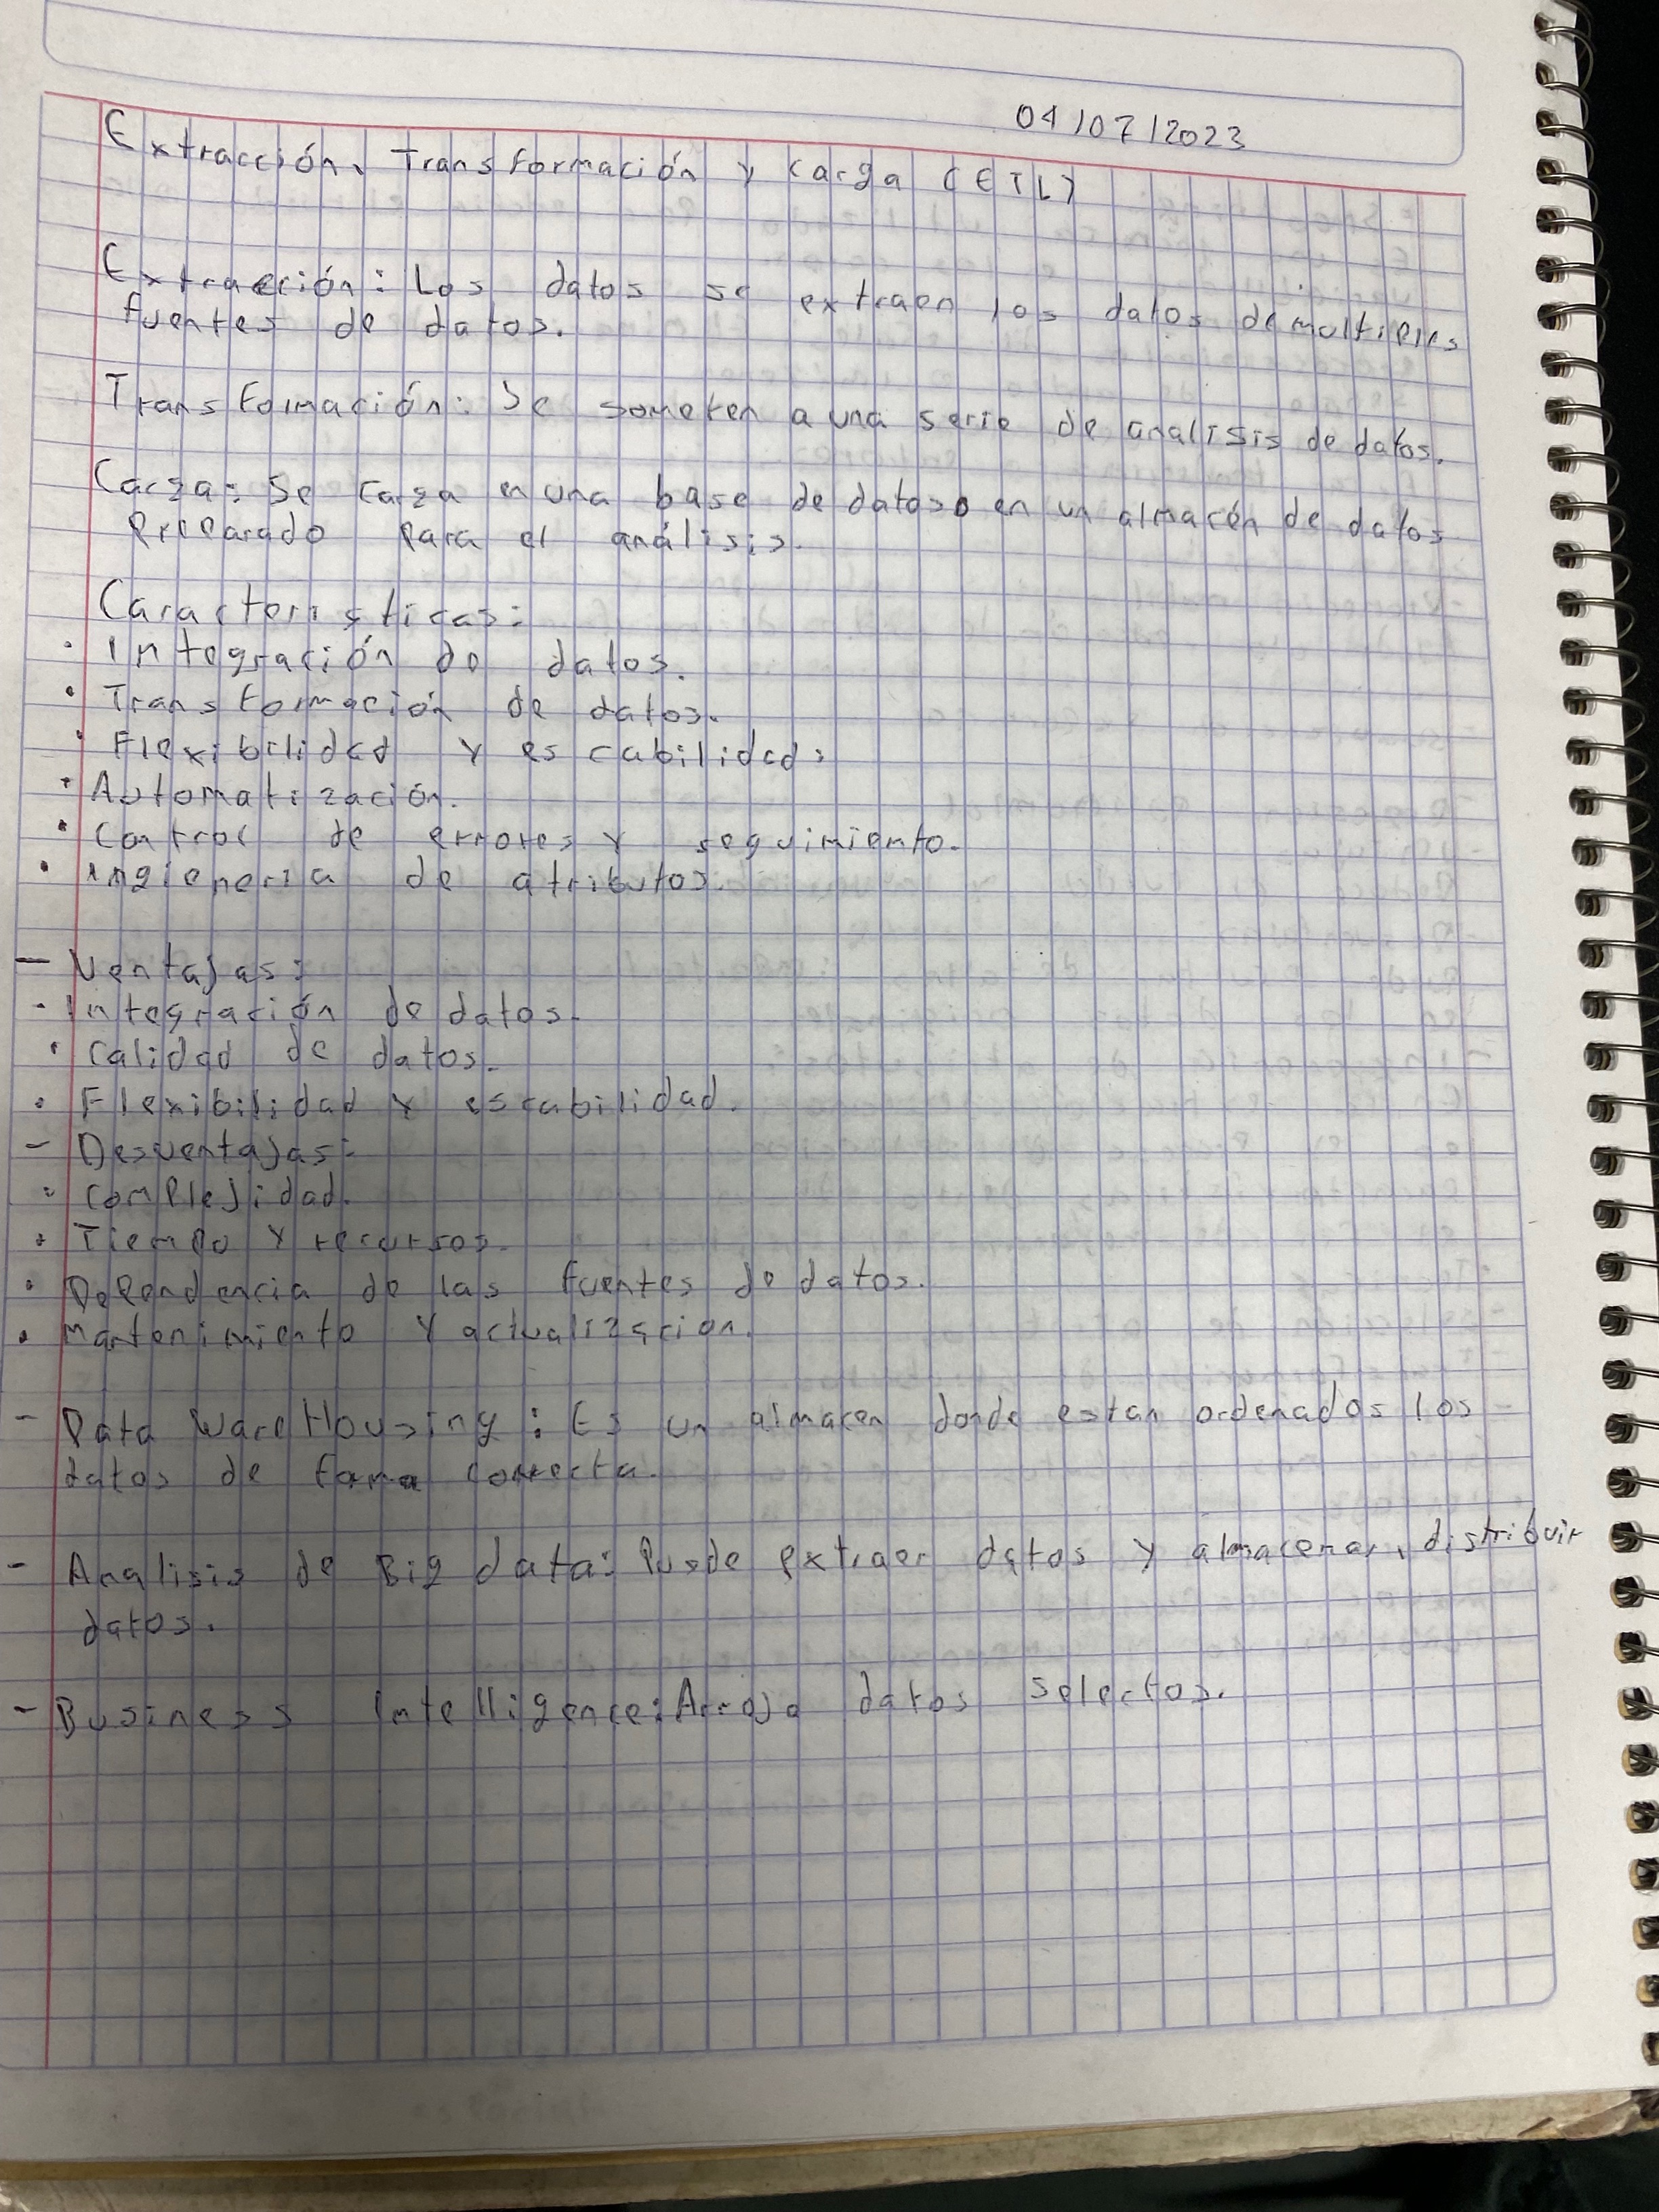 04/07/2023
Extracción, Transformación y carga (ETL)
Extracción: Los datos se extraen los datos de multiples
fuentes de datos.
Transformación: Se someten a una serie de analisis de datos.
Carga: Se carga en una base de datos o en un almacén de datos
preparado para el análisis.
Caracteristicas:
· Integración de datos.
· Transformación de datos.
· Flexibilidad y escabilidad:
· Automatización.
· Control de errores y seguimiento.
· Ingieneria de atributos.
- Ventajas:
· Integración de datos.
· Calidad de datos.
· Flexibilidad y escabilidad.
- Desventajas:
· Complejidad.
· Tiempo y recursos.
· Dependencia de las fuentes de datos.
· Mantenimiento y actualizacion.
- Data WareHousing: Es un almacen donde estan ordenados los
datos de forma correcta.
- Analisis de Big data: Puede extraer datos y almacenar, distribuir
datos.
- Business Intelligence: Arroja datos selectos.